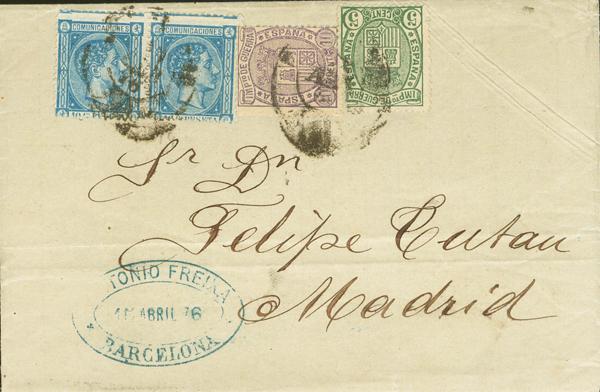 COMUNICACIONES COMUNICACIONES
ESPAÑA
IMPTO DE GUERRA
5 CENT. 5
ESPAÑA
IMPTO DE GUERRA
Sr Dn
Felipe Tutau
Madrid
ANTONIO FREIXA
ABRIL 76
BARCELONA